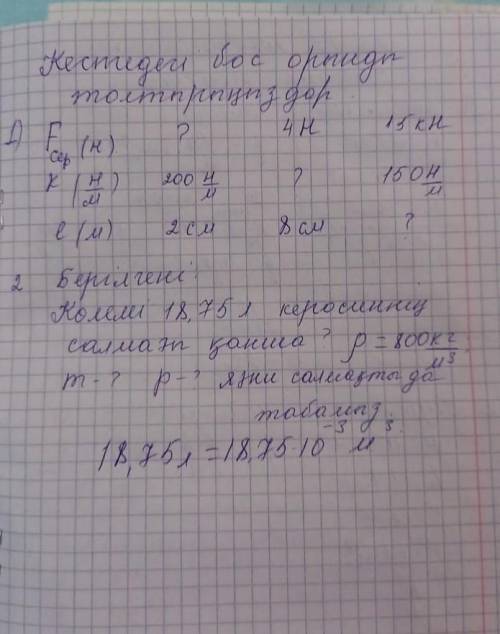 Кестедегі бос орынды
толтырыңыздар
1) Fсер (Н) ? 4Н 15кН
k (Н/м) 200 Н/м ? 150 Н/м
l (м) 2 см 8 см ?
2 Берілгені:
Көлемі 18,75 л керосиннің
салмағы қанша? ρ = 800 кг/м³
m - ? p - ? яғни салмақты да
табамыз.
18,75л = 18,75·10⁻³ м³